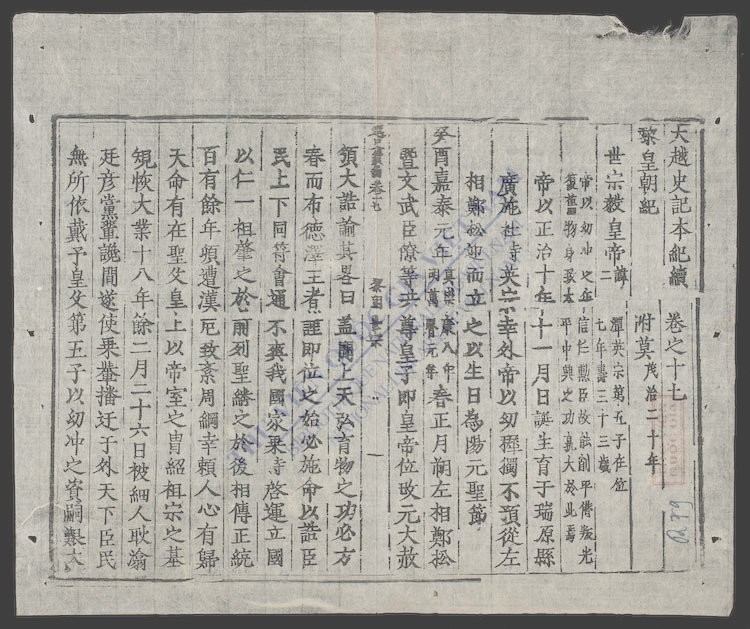 大越史記本紀續　卷之十七
黎皇朝紀　附莫茂洽二十年
世宗毅皇帝諱潭英宗第五子在位
二七年壽三十三歲
帝以幼冲之年信任勲臣故能削平僣叛光
復舊物身致太平中興之功孰大於此焉
帝以正治十年十一月日誕生育于瑞原縣
廣施社時英宗幸外帝以幼穉獨不預從左
相鄭松迎而立之以生日為陽元聖節
癸酉嘉泰元年莫崇康八年明萬曆元年春正月朔左相鄭松
暨文武臣僚等共尊皇子即皇帝位改元大赦
頒大誥諭其畧曰盖聞上天弘育物之功必方
春而布德澤王者謹即位之始必施命以誥臣
民上下同符會通不爽我國家乗時啓運立國
以仁一祖肇之於前列聖繼之於後相傳正統
百有餘年頃遭漢厄致紊周綱幸頼人心有歸
天命有在聖父皇上以帝室之胄紹祖宗之基
規恢大業十八年餘二月二十六日被細人耿瀹
廷彦黨輩讒間遂使乗輦播迁于外天下臣民
無所依戴予皇父第五子以幼冲之資嗣艱大